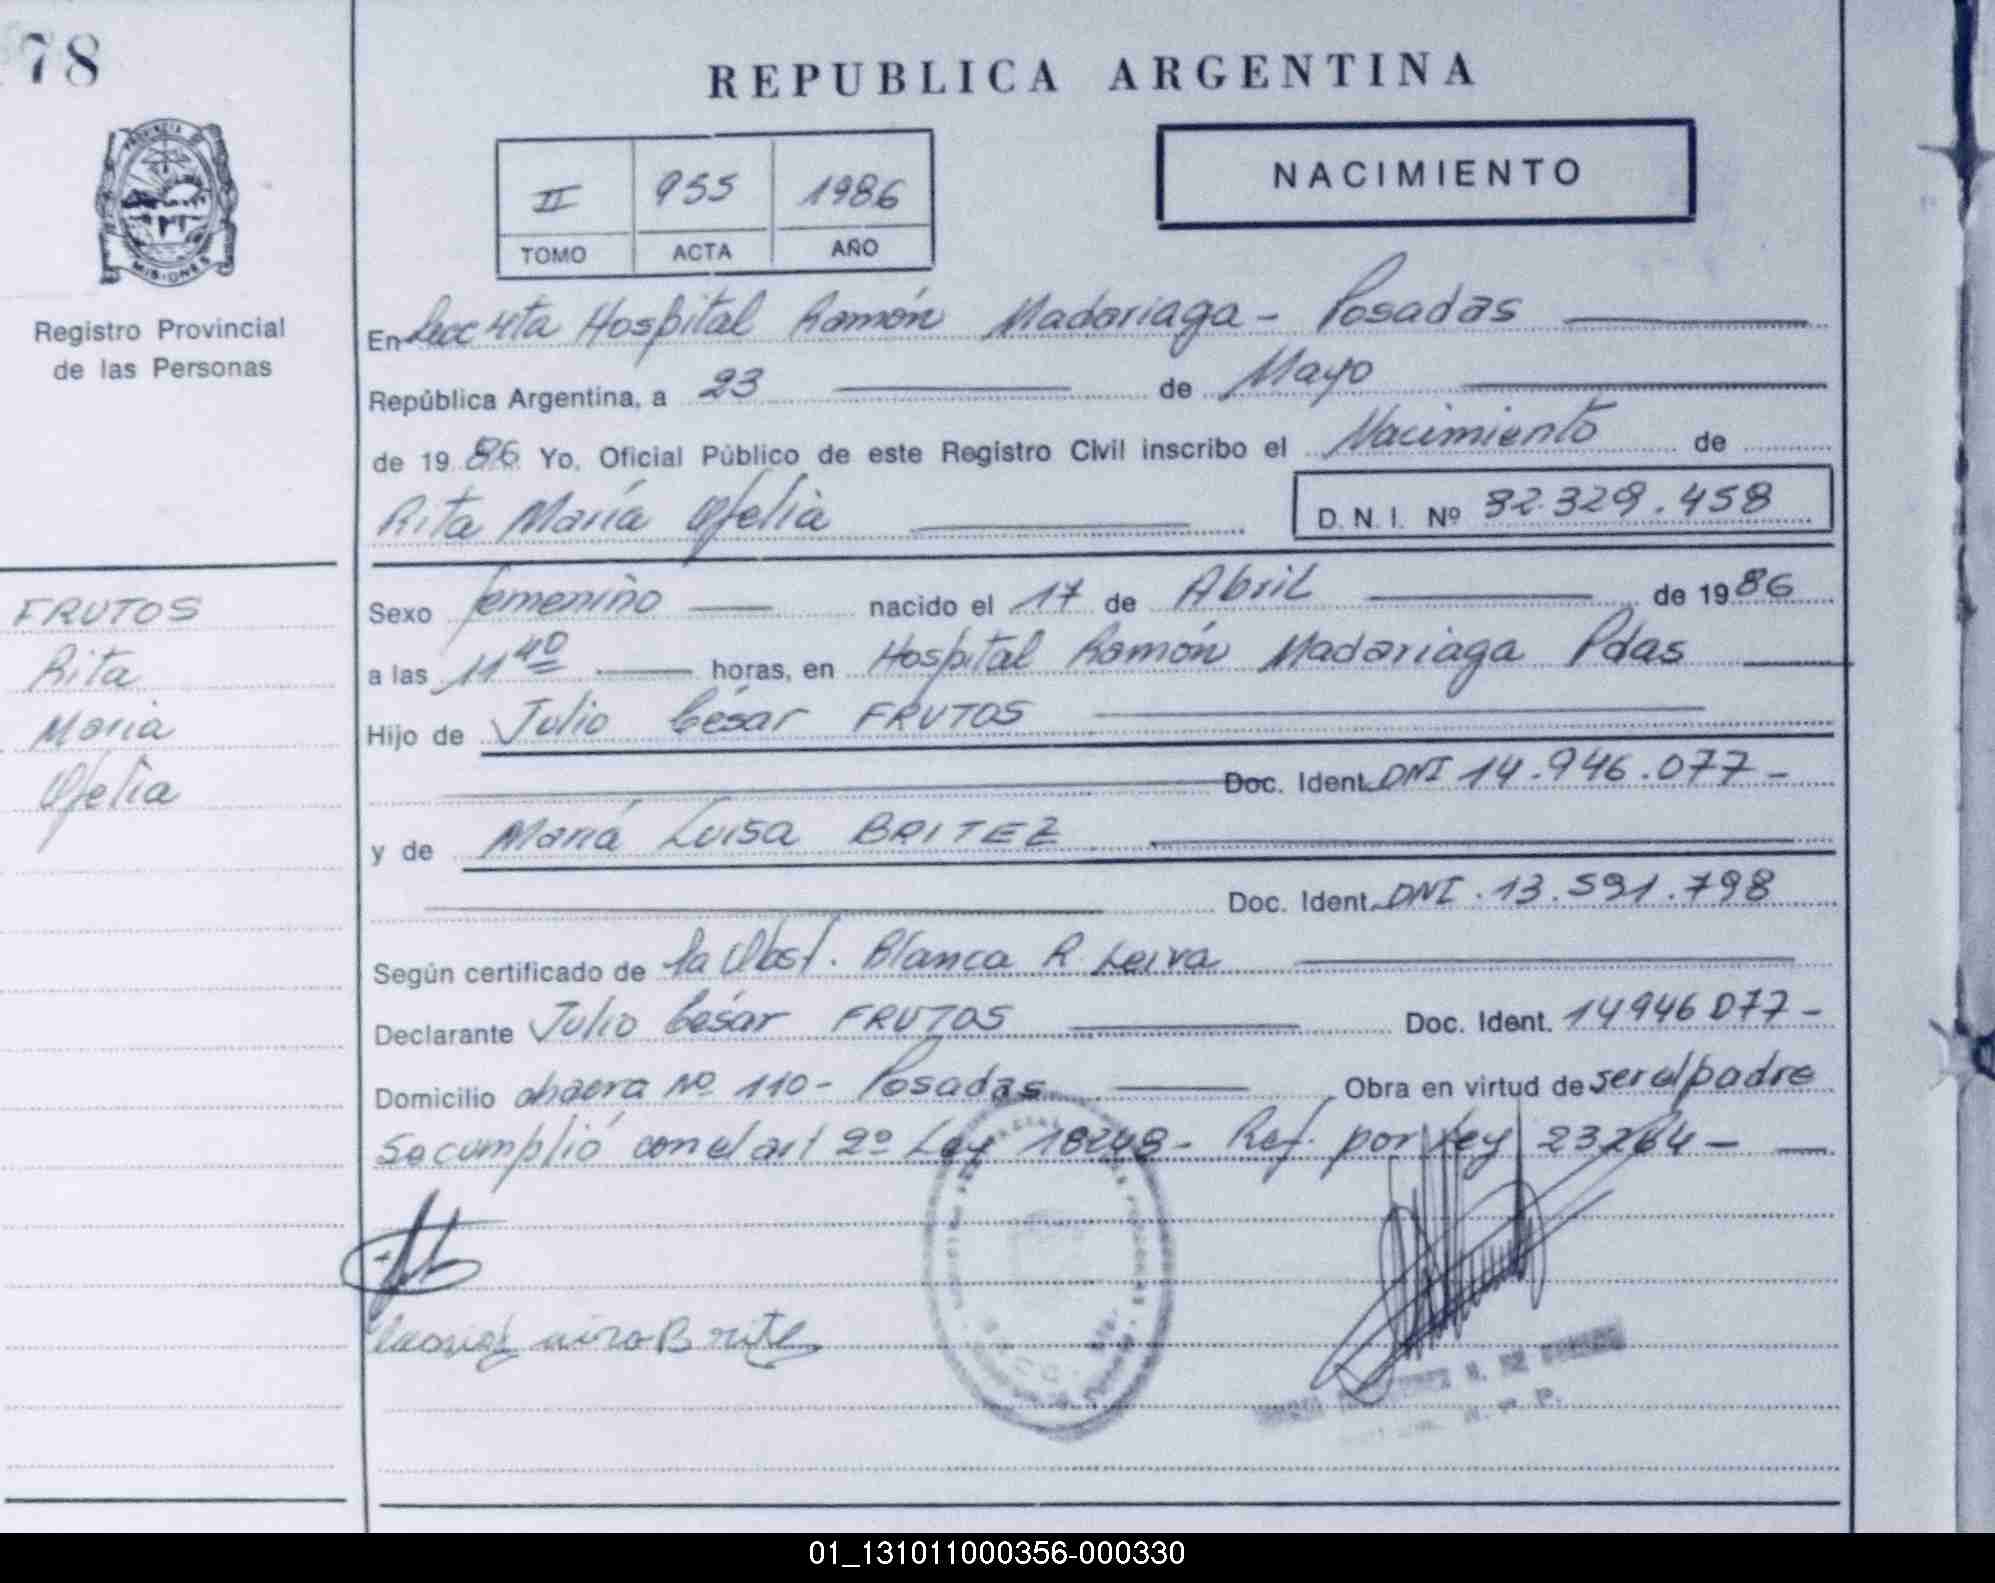 78
REPUBLICA ARGENTINA
II 955 1986
TOMO ACTA AÑO
NACIMIENTO
PROVINCIA DE
MISIONES
Registro Provincial
de las Personas
En Secc 4ta Hospital Ramón Madariaga - Posadas
República Argentina, a 23 de Mayo
de 1986 Yo, Oficial Público de este Registro Civil inscribo el Nacimiento de
Rita María Ofelia D.N.I. Nº 32.329.458
FRUTOS
Rita
María
Ofelia
Sexo femenino nacido el 17 de Abril de 1986
a las 11 40 horas, en Hospital Ramón Madariaga Pdas
Hijo de Julio César FRUTOS
Doc. Ident. DNI 14.946.077-
y de María Luisa BRITEZ
Doc. Ident. DNI. 13.591.798
Según certificado de la Obst. Blanca R. Leiva
Declarante Julio César FRUTOS Doc. Ident. 14946077-
Domicilio chacra Nº 110- Posadas Obra en virtud de ser el padre
Se cumplió con el art 2º Ley 18248- Ref. por Ley 23264-
01_131011000356-000330